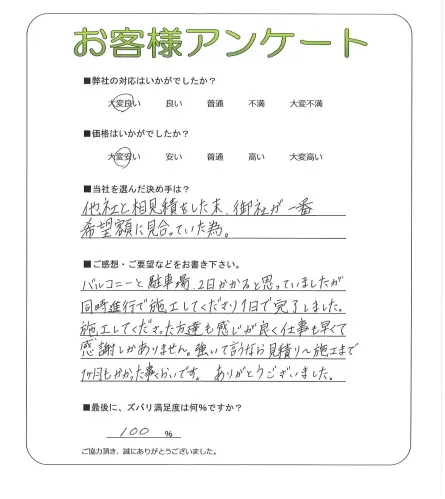 お客様アンケート
■弊社の対応はいかがでしたか？
大変良い 良い 普通 不満 大変不満
■価格はいかがでしたか？
大変安い 安い 普通 高い 大変高い
■当社を選んだ決め手は？
他社と相見積をした末、御社が一番
希望額に見合っていた為。
■ご感想・ご要望などをお書き下さい。
バルコニーと駐車場、2日かかると思っていましたが
同時進行で施工してくださり1日で完了しました。
施工してくださった方達も感じが良く仕事も早くて
感謝しかありません。強いて言うなら見積り〜施工まで
1ヶ月もかかった事くらいです。ありがとうございました。
■最後に、ズバリ満足度は何%ですか？
100 %
ご協力頂き、誠にありがとうございました。